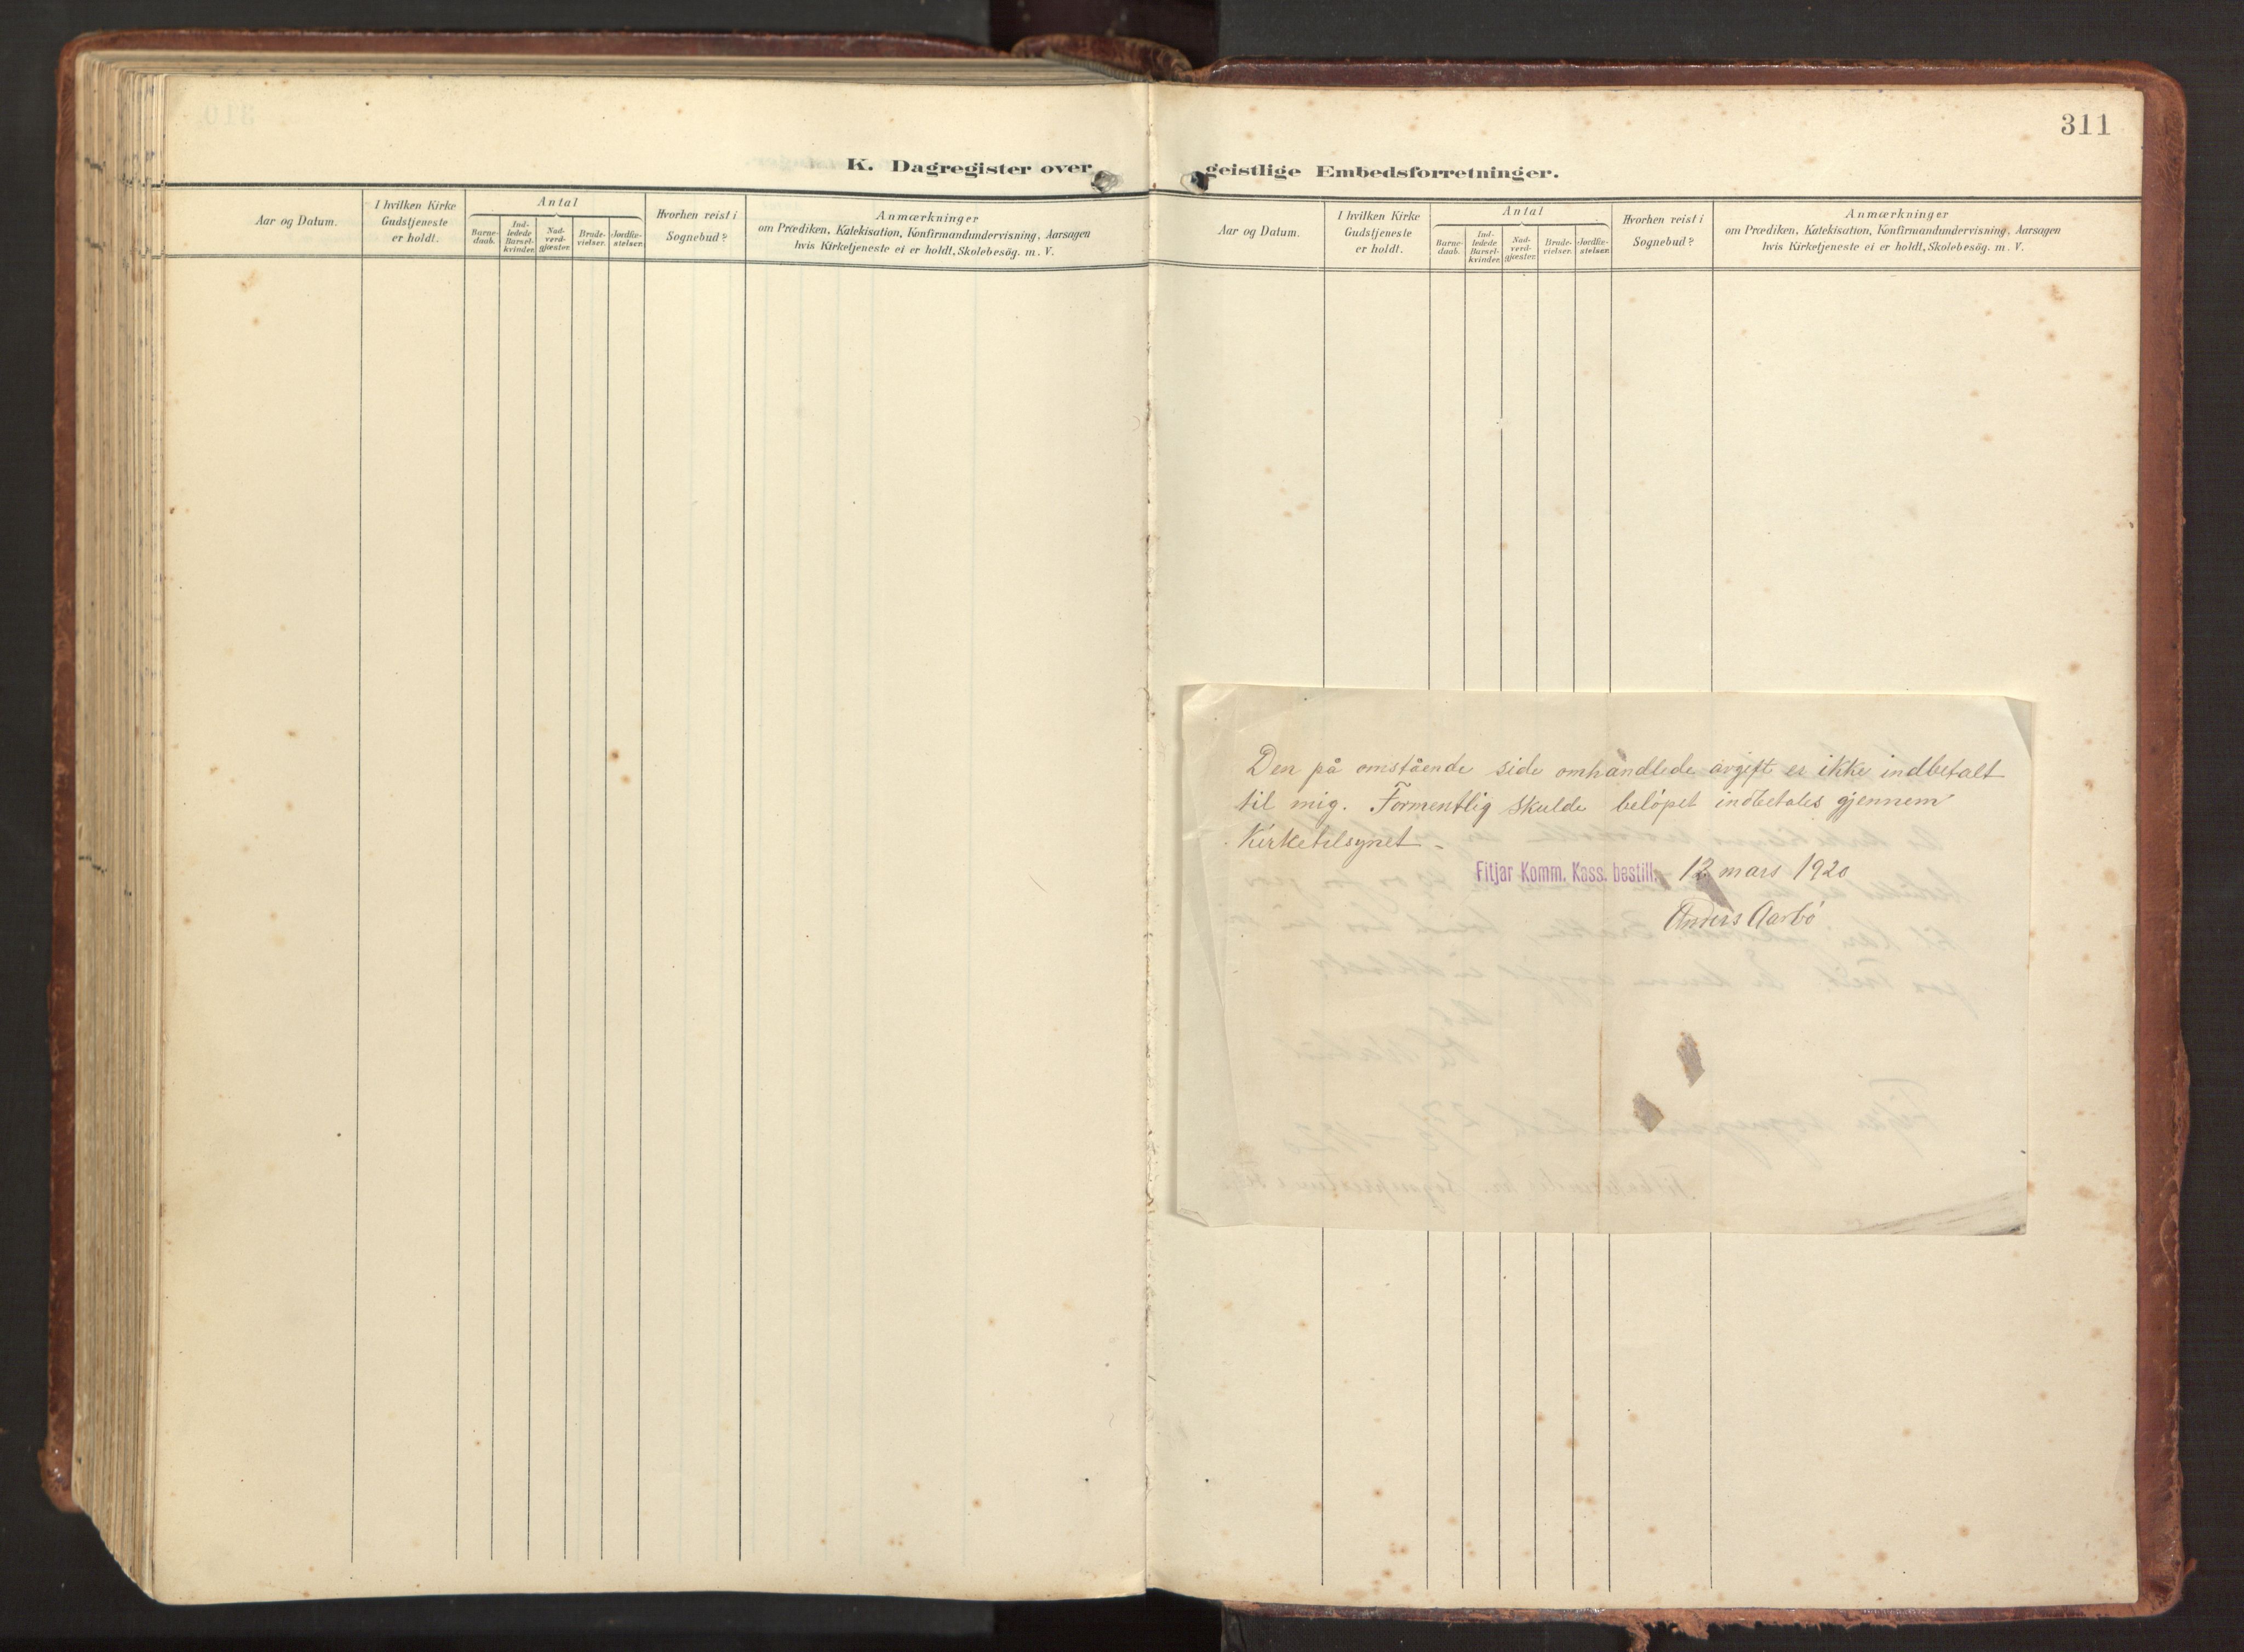 310
K. Dagregister over
Aar og Datum.
I hvilken Kirke
Gudstjeneste
er holdt.
Antal
Barne-
daab.
Ind-
ledede
Barsel-
kvinder.
Nad-
verd-
gjæster.
Brude-
vielser.
Jordfæ-
stelser.
Hvorhen reist i
Sognebud?
Anmærkninger
om Prædiken, Katekisation, Konfirmandundervisning, Aarsagen
hvis Kirketjeneste ei er holdt, Skolebesög. m. V.
311
geistlige Embedsforretninger.
Aar og Datum.
I hvilken Kirke
Gudstjeneste
er holdt.
Antal
Barne-
daab.
Ind-
ledede
Barsel-
kvinder.
Nad-
verd-
gjæster.
Brude-
vielser.
Jordfæ-
stelser.
Hvorhen reist i
Sognebud?
Anmærkninger
om Prædiken, Katekisation, Konfirmandundervisning, Aarsagen
hvis Kirketjeneste ei er holdt, Skolebesög. m. V.
Den på omstående side omhandlede avgift er ikke indbetalt
til mig. Formentlig skulde beløpet indbetales gjennem
Kirketilsynet.
Fitjar Komm. Kass. bestill. 12 mars 1920
Anders Aarbø